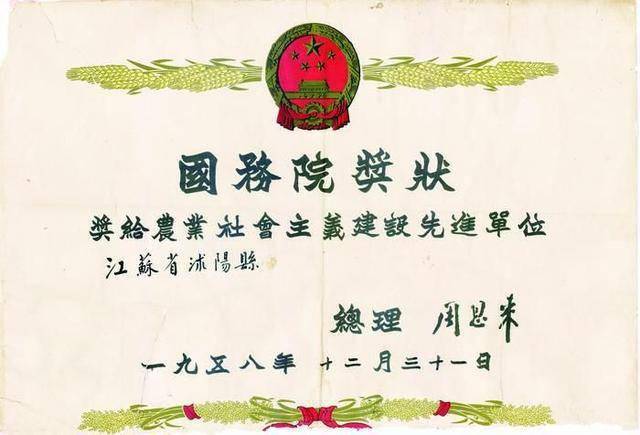 國務院獎狀
獎給農業社會主義建設先進單位
江蘇省沭陽縣
總理 周恩來
一九五八年 十二月三十一日